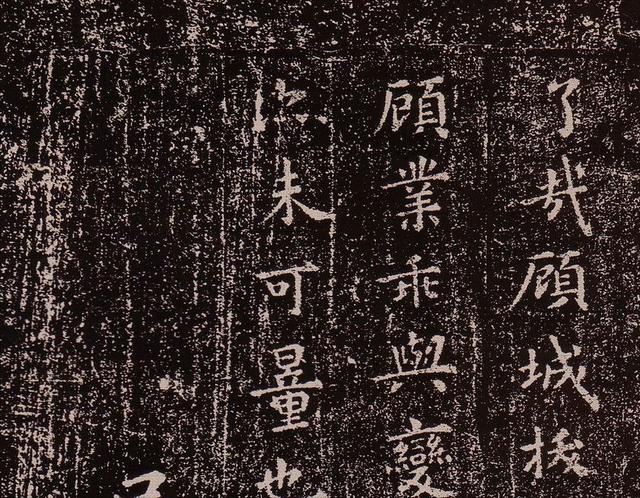 了哉顧城拔
顧業乖與變
然未可量也